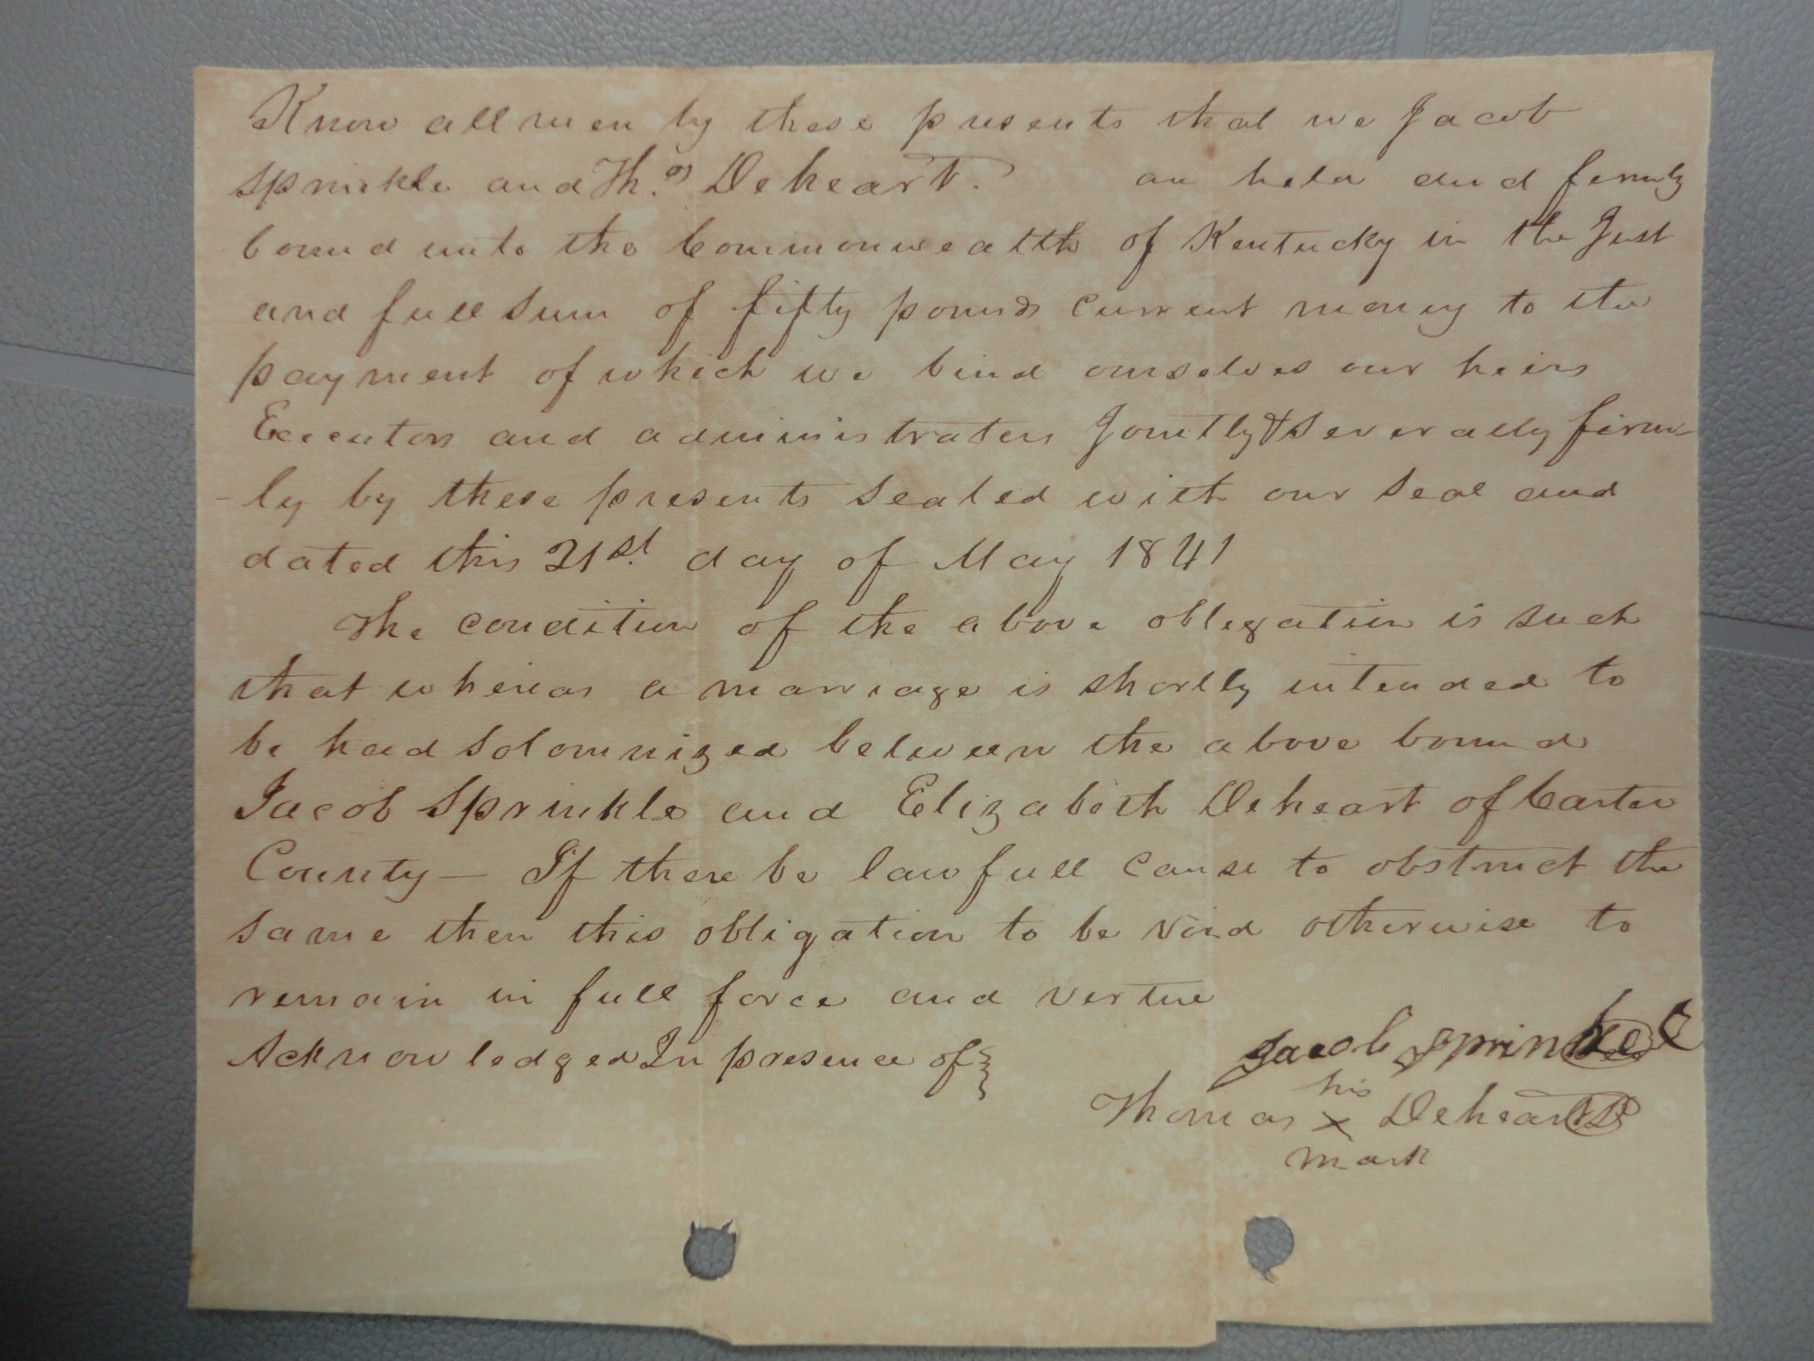 Know all men by these presents that we Jacob
Sprinkle and Th.os Deheart. are held and firmly
bound unto the Commonwealth of Kentucky in the Just
and full sum of fifty pounds current money to the
payment of which we bind ourselves our heirs
Executors and administrators Jointly & severally firm-
-ly by these presents sealed with our seal and
dated this 21st. day of May 1841
The condition of the above obligation is such
that whereas a marriage is shortly intended to
be had solomnized between the above bound
Jacob Sprinkle and Elizabeth Deheart of Carter
County — If there be lawfull cause to obstruct the
same then this obligation to be void otherwise to
remain in full force and vertue
Acknowledged In presence of
Jacob Sprinkel
his
Thomas x Deheart
mark